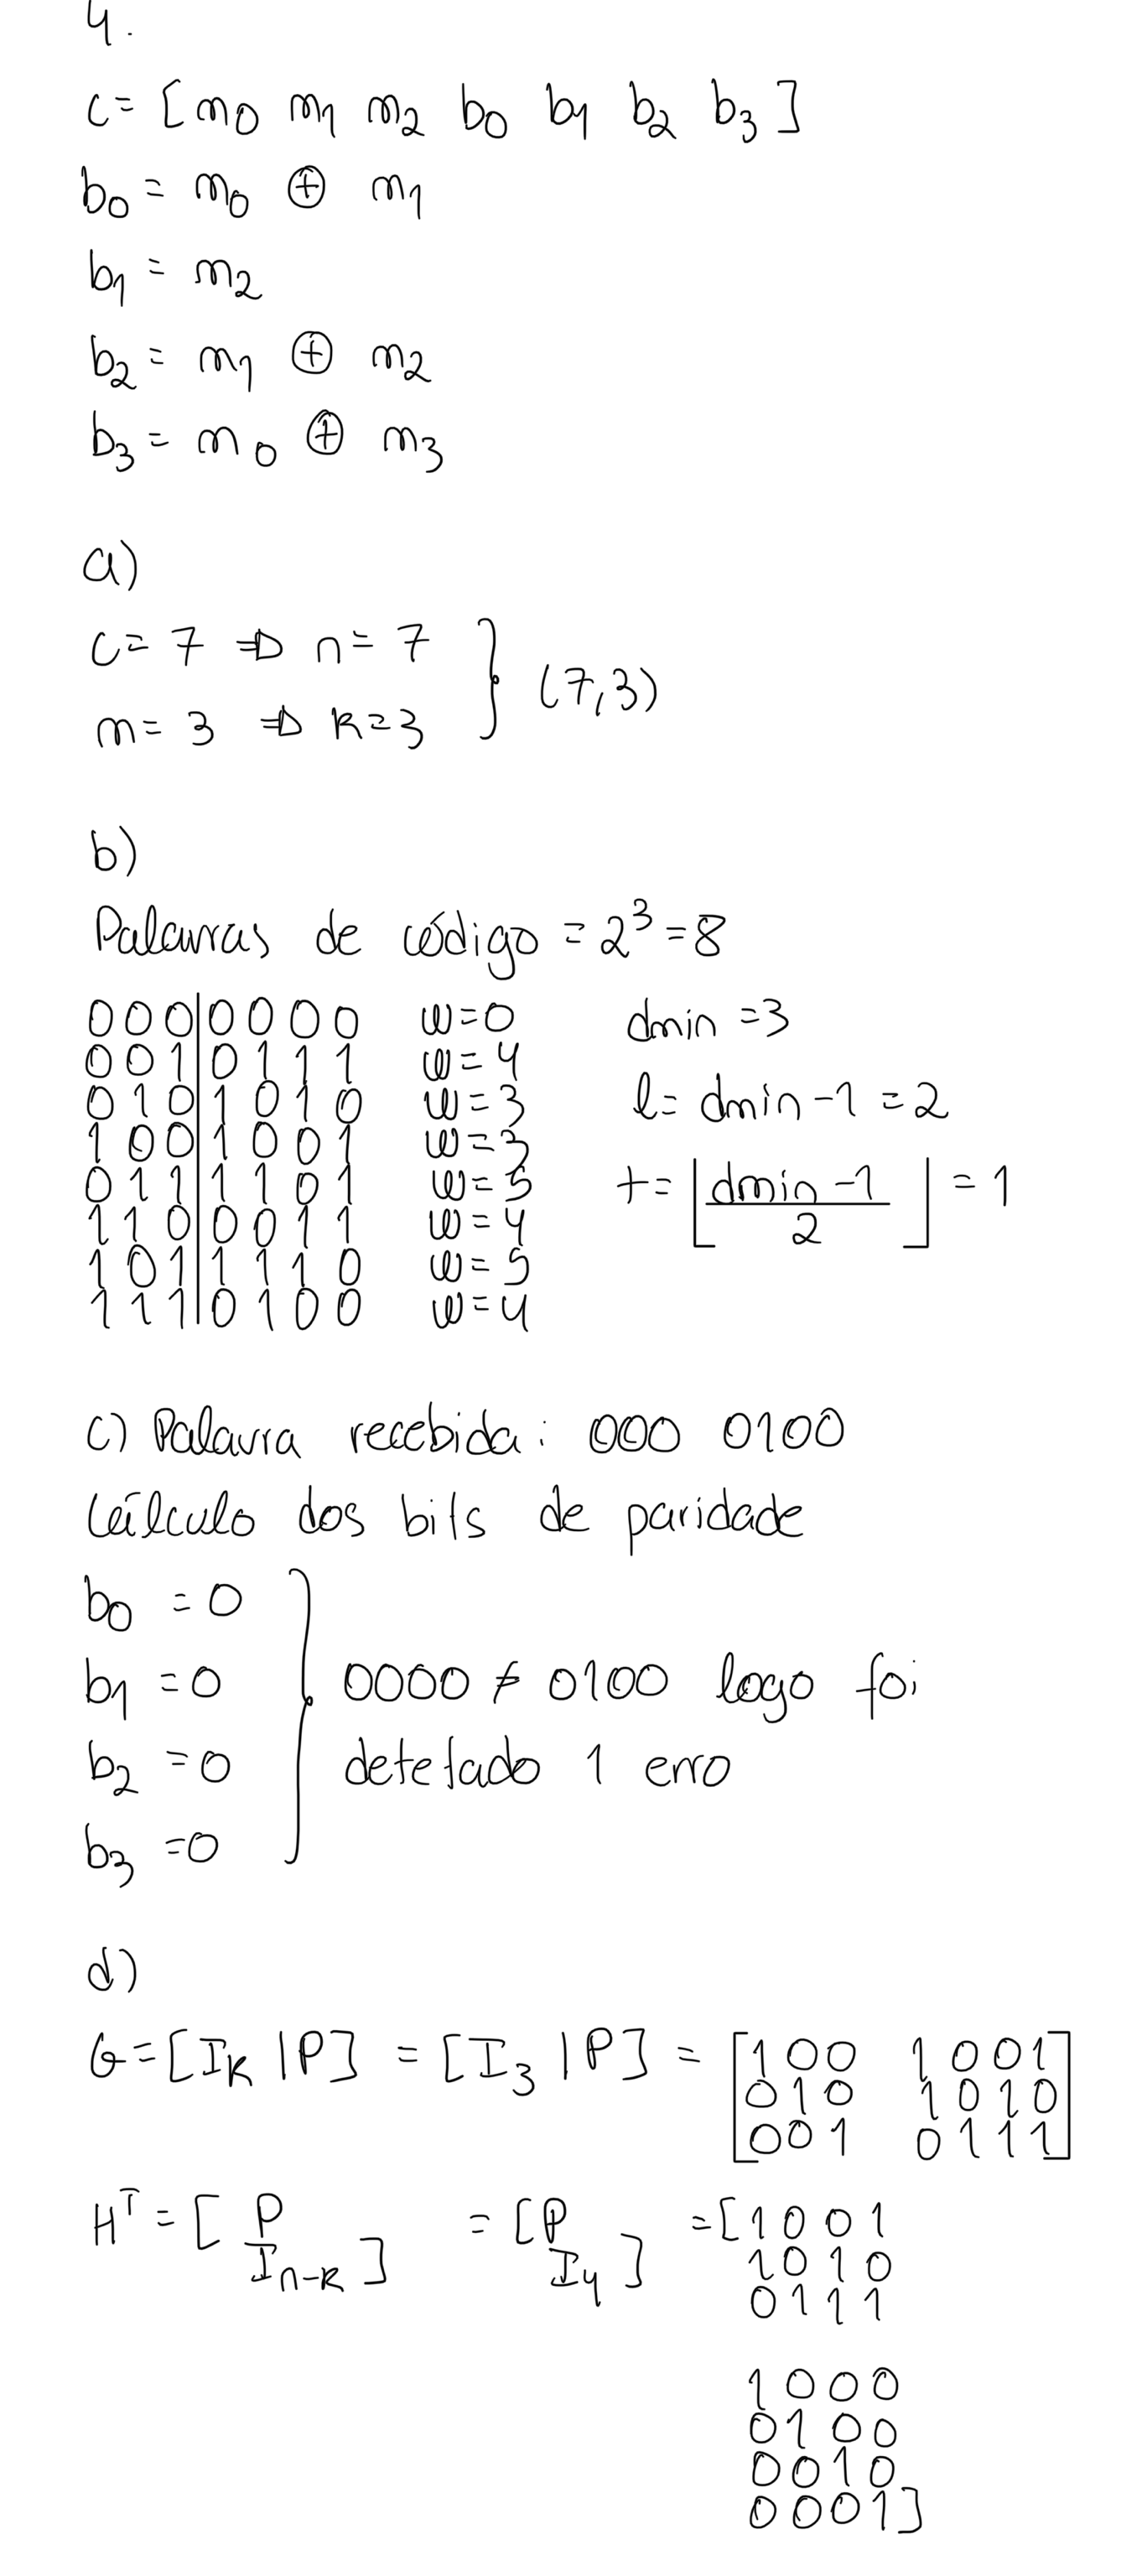 4.
c = [m0 m1 m2 b0 b1 b2 b3]
b0 = m0 ⊕ m1
b1 = m2
b2 = m1 ⊕ m2
b3 = m0 ⊕ m3
a)
c = 7 ⇒ n = 7
m = 3 ⇒ k = 3 } (7,3)
b)
Palavras de código = 2³ = 8
000|0000 w=0 dmin = 3
001|0111 w=4
010|1010 w=3 l = dmin - 1 = 2
100|1001 w=3
011|1101 w=5 t = ⌊(dmin - 1)/2⌋ = 1
110|0011 w=4
101|1110 w=5
111|0100 w=4
c) Palavra recebida: 000 0100
Cálculo dos bits de paridade
b0 = 0
b1 = 0 } 0000 ≠ 0100 logo foi
b2 = 0 detetado 1 erro
b3 = 0
d)
G = [Ik | P] = [I3 | P] = [100 1001
010 1010
001 0111]
H^T = [P = [P = [1001
In-k] I4] 1010
0111
1000
0100
0010
0001]